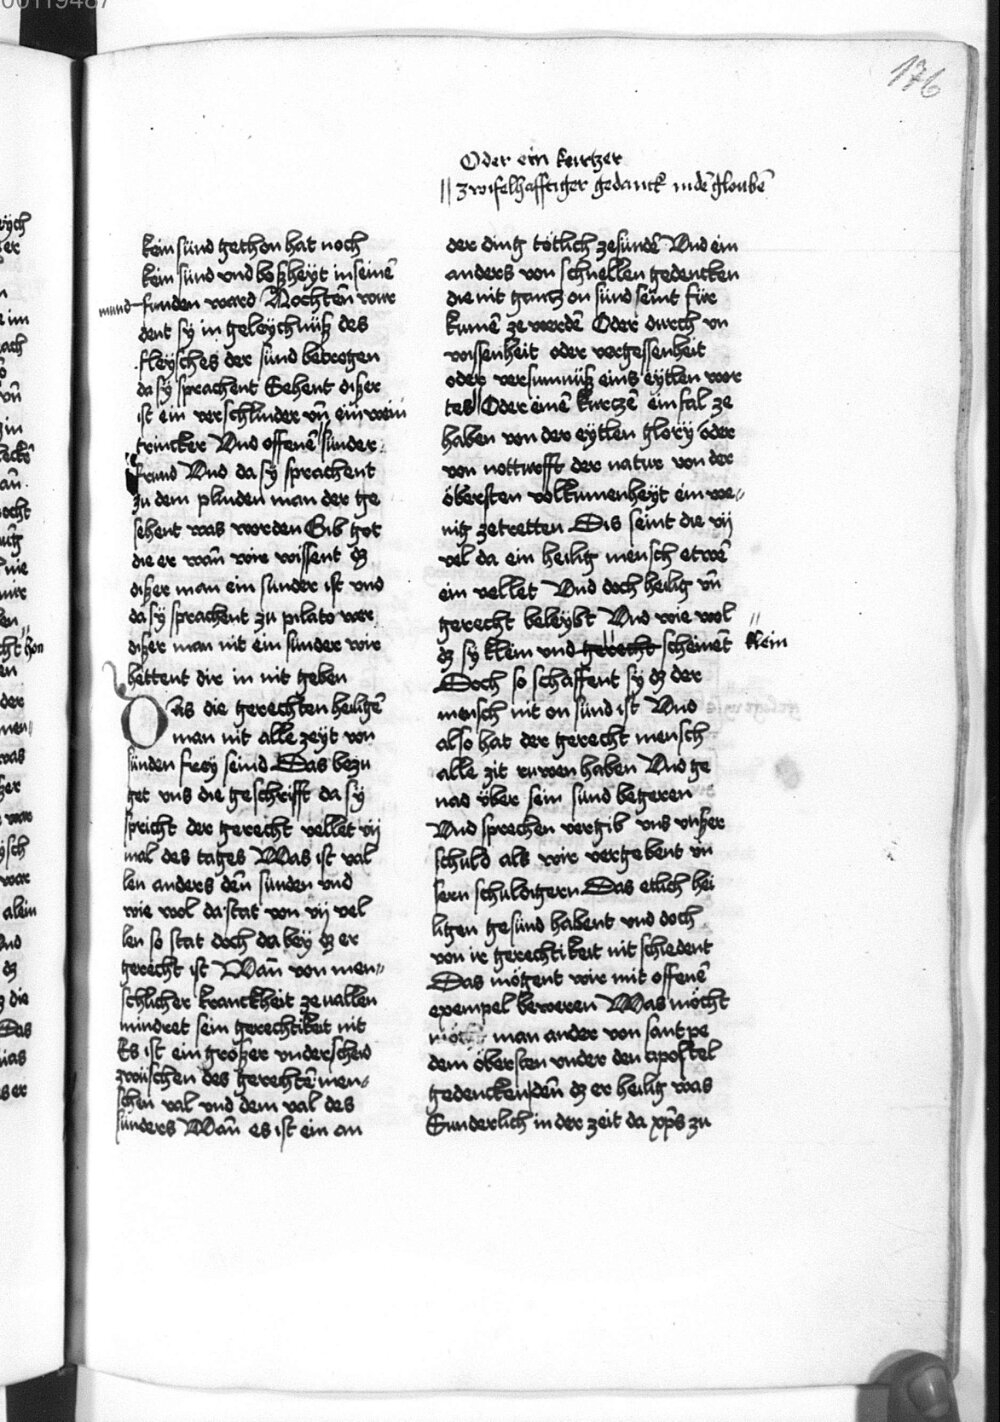 176
Oder ein kurtzer
|| zwifelhafftiger gedanck in dē glouben̄
kein sünd gethon hat noch
kein sünd vnd boßheyt in seinē
mund funden ward Mochten wur
dent sy in geleychnüß des
fleysches der sünd betrogen
da sy sprachent Sehent dißer
ist ein verschlinder vn̄ ein wein
trincker Vnd offenē sünder
frund Vnd da sy sprachent
zu dem plinden man der ge
sehent was worden Gib got
die er wan̄ wir wissent dz
dißer man ein sünder ist vnd
da sy sprachent zu pilato wer
dißer man nit ein sünder wir
hettent dir in nit geben
Das die gerechten heiligē
man nit alle zeyt von
sünden frey seind Das bezu
get vns die geschrifft da sy
spricht der gerecht vellet vij
mal des tages Was ist val
len anders den̄ sünden vnd
wie wol da stat von vij vel
len so stat doch da bey dz er
gerecht ist Wan̄ von men„
schlicher kranckheit ze vallen
mindret sein gerechtikeit nit
Es ist ein großer vnderscheid
zwüschen des gerechtē men„
schen val vnd dem val des
sünders Wan̄ es ist ein an
der ding tötlich ze sündē Vnd ein
anders von schnellen gedencken
die nit gantz on sünd seint für
kumē ze werdē Oder durch vn
wissenheit oder vergessenheit
oder versumnüß eins eytlen wor
tes || Oder einē kurtzē einfal ze
haben von der eytlen glory oder
von notturfft der natur von der
öbersten volkumenheyt ein we„
nig ze tretten Dis seint die vij
vel da ein heilig mensch etwē
ein vellet Vnd doch heilig vn̄
gerecht beleybt Vnd wie wol
dz sy klein vnd gerecht scheinēt klein
Doch so schaffent sy dz der
mensch nit on sünd ist Vnd
also hat der gerecht mensch
alle zit ruwen haben Vnd ge
nad über sein sünd begeren
Vnd sprechen vergib vns vnßer
schuld als wir vergebent vn
sern schuldigern Das etlich hei
ligen gesünd habent vnd doch
von ir gerechtikeit nit schiedent
Das mögent wir mit offenē
exempel beweren Was möcht
man ander von sant pe
dem öbersten vnder den apostel
gedencken den̄ dz er heilig was
Sunderlich in der zeit da xp̄s zu